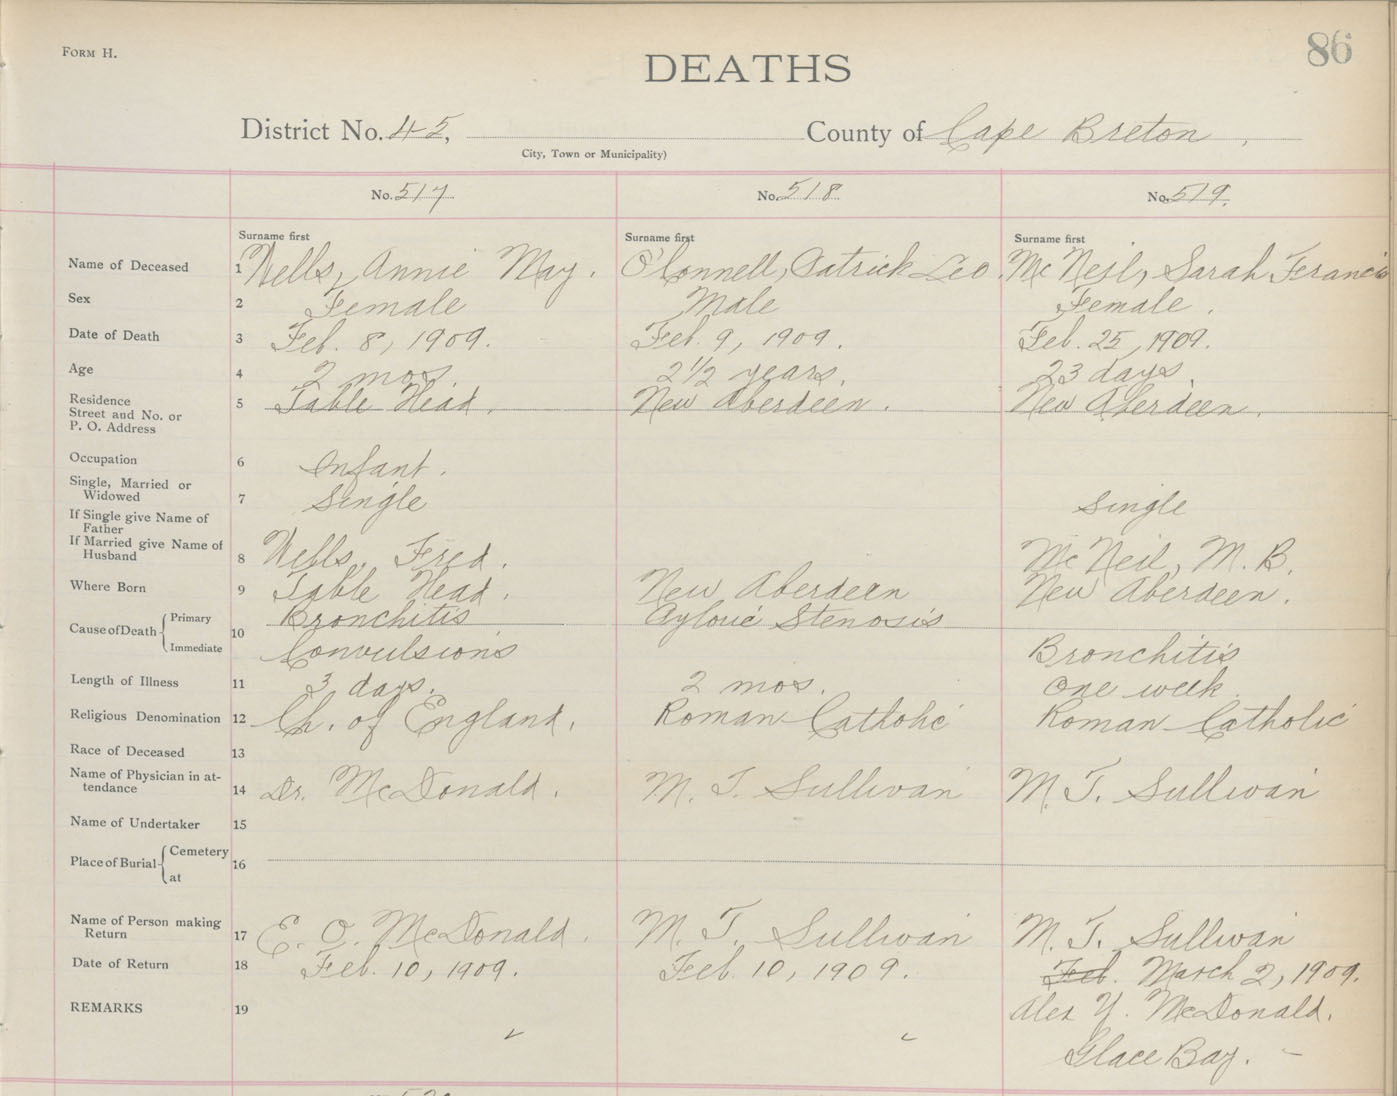 FORM H.
86
DEATHS
District No. 45, County of Cape Breton,
City, Town or Municipality)
No. 517 No. 518 No. 519.
Surname first Surname first Surname first
Name of Deceased 1 Wells, Annie May. O'Connell, Patrick Leo. Mc Neil, Sarah Francis
Sex 2 Female Male Female.
Date of Death 3 Feb. 8, 1909. Feb. 9, 1909. Feb. 25, 1909.
Age 4 2 mos. 2 1/2 years. 23 days.
Residence
Street and No. or 5 Table Head. New Aberdeen. New Aberdeen.
P. O. Address
Occupation 6 Infant.
Single, Married or
Widowed 7 Single Single
If Single give Name of
Father
If Married give Name of
Husband 8 Wells, Fred. Mc Neil, M. B.
Where Born 9 Table Head. New Aberdeen New Aberdeen.
Cause of Death Primary 10 Bronchitis Stenosis
Immediate Convulsions Bronchitis
Length of Illness 11 3 days. 2 mos. One week.
Religious Denomination 12 Ch. of England. Roman Catholic Roman Catholic
Race of Deceased 13
Name of Physician in at-
tendance 14 Dr. McDonald. M. T. Sullivan M. T. Sullivan
Name of Undertaker 15
Place of Burial Cemetery 16
at
Name of Person making
Return 17 E. O. McDonald. M. T. Sullivan M. T. Sullivan
Date of Return 18 Feb. 10, 1909. Feb. 10, 1909. Feb. March 2, 1909.
REMARKS 19 Alex Y. McDonald.
Glace Bay.